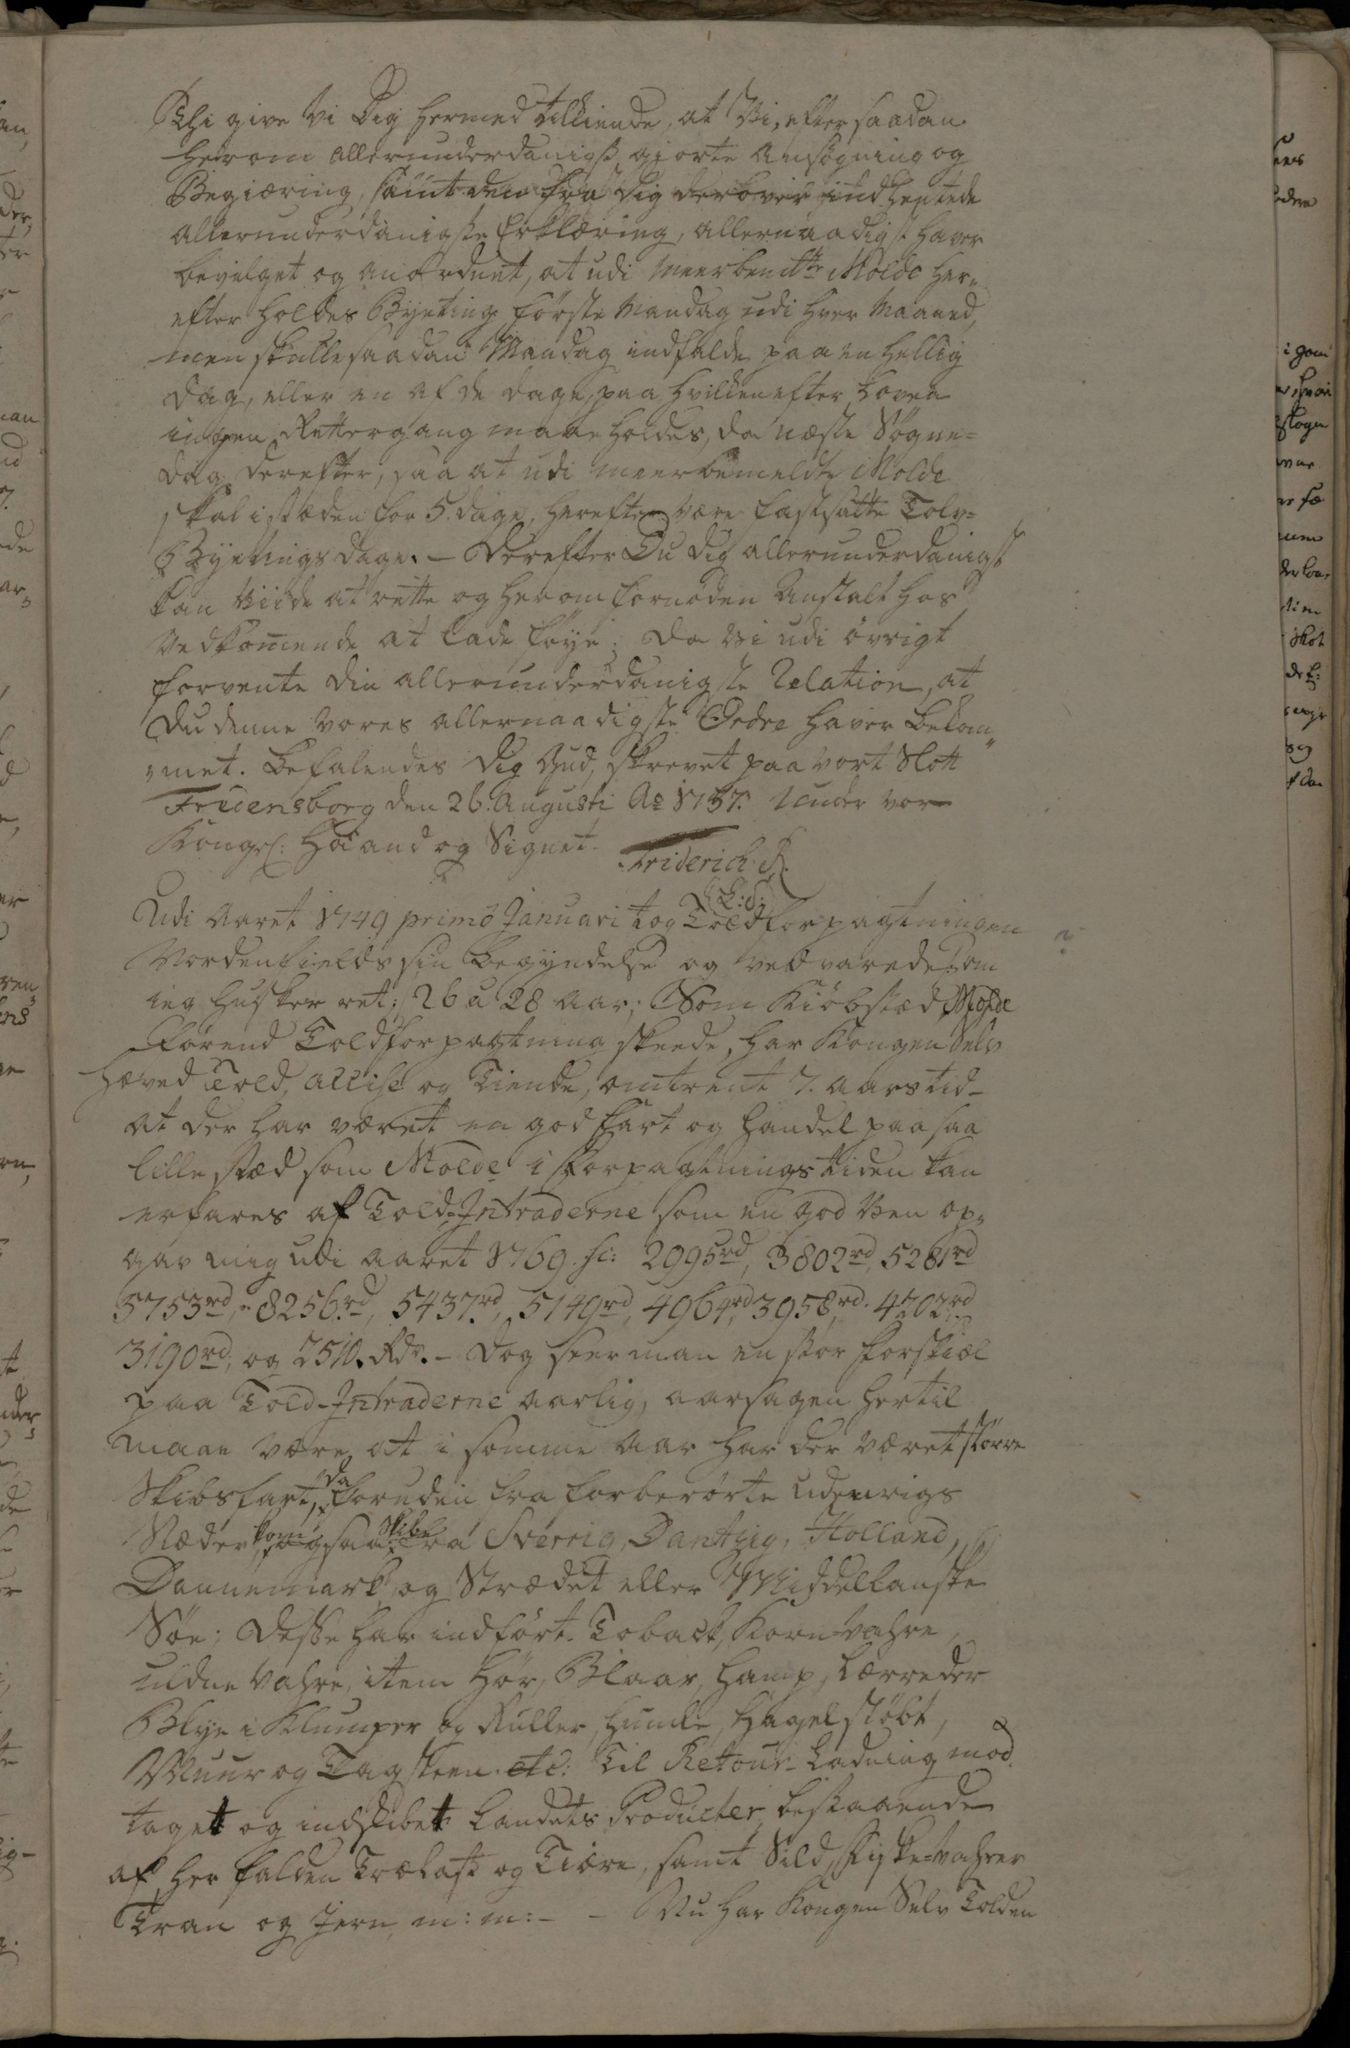 Thi give Vi Dig hermed tilkiende, at Vi, efter saadan
herom allerunderdanigst giorte Ansøgning og
Begiæring, samt den fra Dig derover indhentede
allerunderdanigste Erklæring, allernaadigst haver
bevilget og anordnet, at udi meerbemte Molde her„
efter holdes Byeting første Mandag udi hver Maaned,
men skulle saadan Mandag indfalde paa en hellig
dag, eller en af de dage, paa hvilken efter Loven
ingen Rettergang maae holdes, da næste Søgne=
dag derefter, saa at udi meerbemeldte Molde
skal i stæden for 5. dage, herefter være fastsatte Tolv=
Byetings dage. – Derefter Du dig allerunderdanigst
kan viide at rette og herom fornøden Anstalt hos
Vedkomende at lade føye; Da Vi udi øvrigt
forvente din allerunderdanigste Relation, at
Du denne Vores allernaadigste Ordre haver bekom„
„met. Befalendes dig Gud, skrevet paa vort Slott
Fredensborg den 26. Augusti Ao 1757. Under vor
Kongel: Haand og Signet.
Friderich R.
(L:S:)
Udi Aaret 1749 primo Januari tog Toldforpagtningen
Nordenfields sin begyndelse og vedvarede, om
ieg husker ret; 26 a 28 Aar; Som Kiøbstæd Molde
førend Toldforpagtning skeede, har Kongen Selv
hæved Told, Accise og Tiende, omtrent 7. aars tid –
at der har været en god fart og handel paa saa
lille stæd som Molde i Forpagtningstiden kan
erfares af Told-Intraderne som en god Ven op„
gav mig udi aaret 1769. sc: 2995rd, 3802rd, 5281rd
5753rd, 8256rd, 5437rd, 5149rd, 4964rd, 3958rd. 4202rd
3190rd, og 2510. Rdr. – Dog seer man en stor forskiæl
paa Told-Intraderne aarlig, aarsagen hertil
maae være, at i somme Aar har der været større
Skibsfart, da foruden fra forberørte udenrigs
Stæder kom ogsaa Skibe fra Sverrig, Dantzig, Holland,
Dannemark, og Strædet eller Middellanske
Søe; Desse har indført Toback, Korn-Vahre,
uldne Vahre, item Hør, Blaar, Hamp, Lærreder
Blye i Klumper og Ruller, Humle, Hagel støbt,
Muur og Tagsteen etc: Til Retour-Ladning mod
taget og indskibet Landets Producter bestaaende
af her falden Trælast og Tiære, samt Sild, Fiske-Vahrer
Tran og Jern m: m: – – Nu har Kongen Selv Tolden